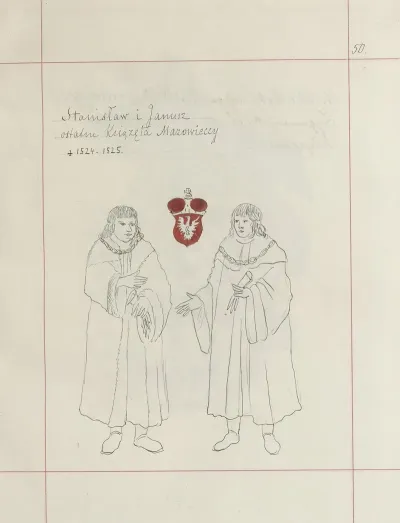 50.
Stanisław i Janusz
ostatni Książęta Mazowieccy
‡ 1524-1525.